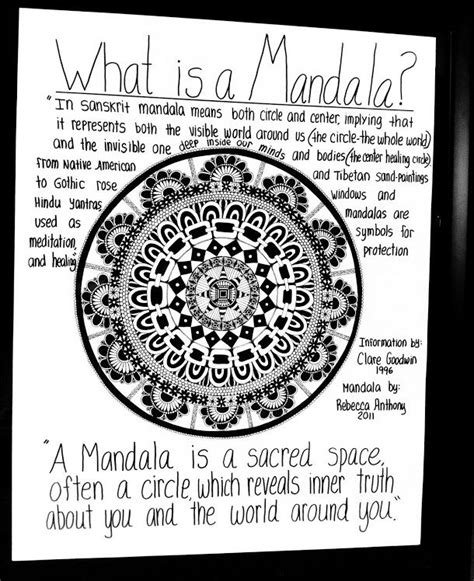 What is a Mandala?
"In Sanskrit mandala means both circle and center, implying that
it represents both the visible world around us (the circle-the whole world)
and the invisible one deep inside our minds and bodies (the center healing circle)
From Native American and Tibetan sand-paintings
to Gothic rose windows and
Hindu Yantras mandalas are
used as symbols for
meditation, protection
and healing
Information by:
Clare Goodwin
1996
Mandala by:
Rebecca Anthony
2011
"A Mandala is a sacred space,
often a circle, which reveals inner truth
about you and the world around you."